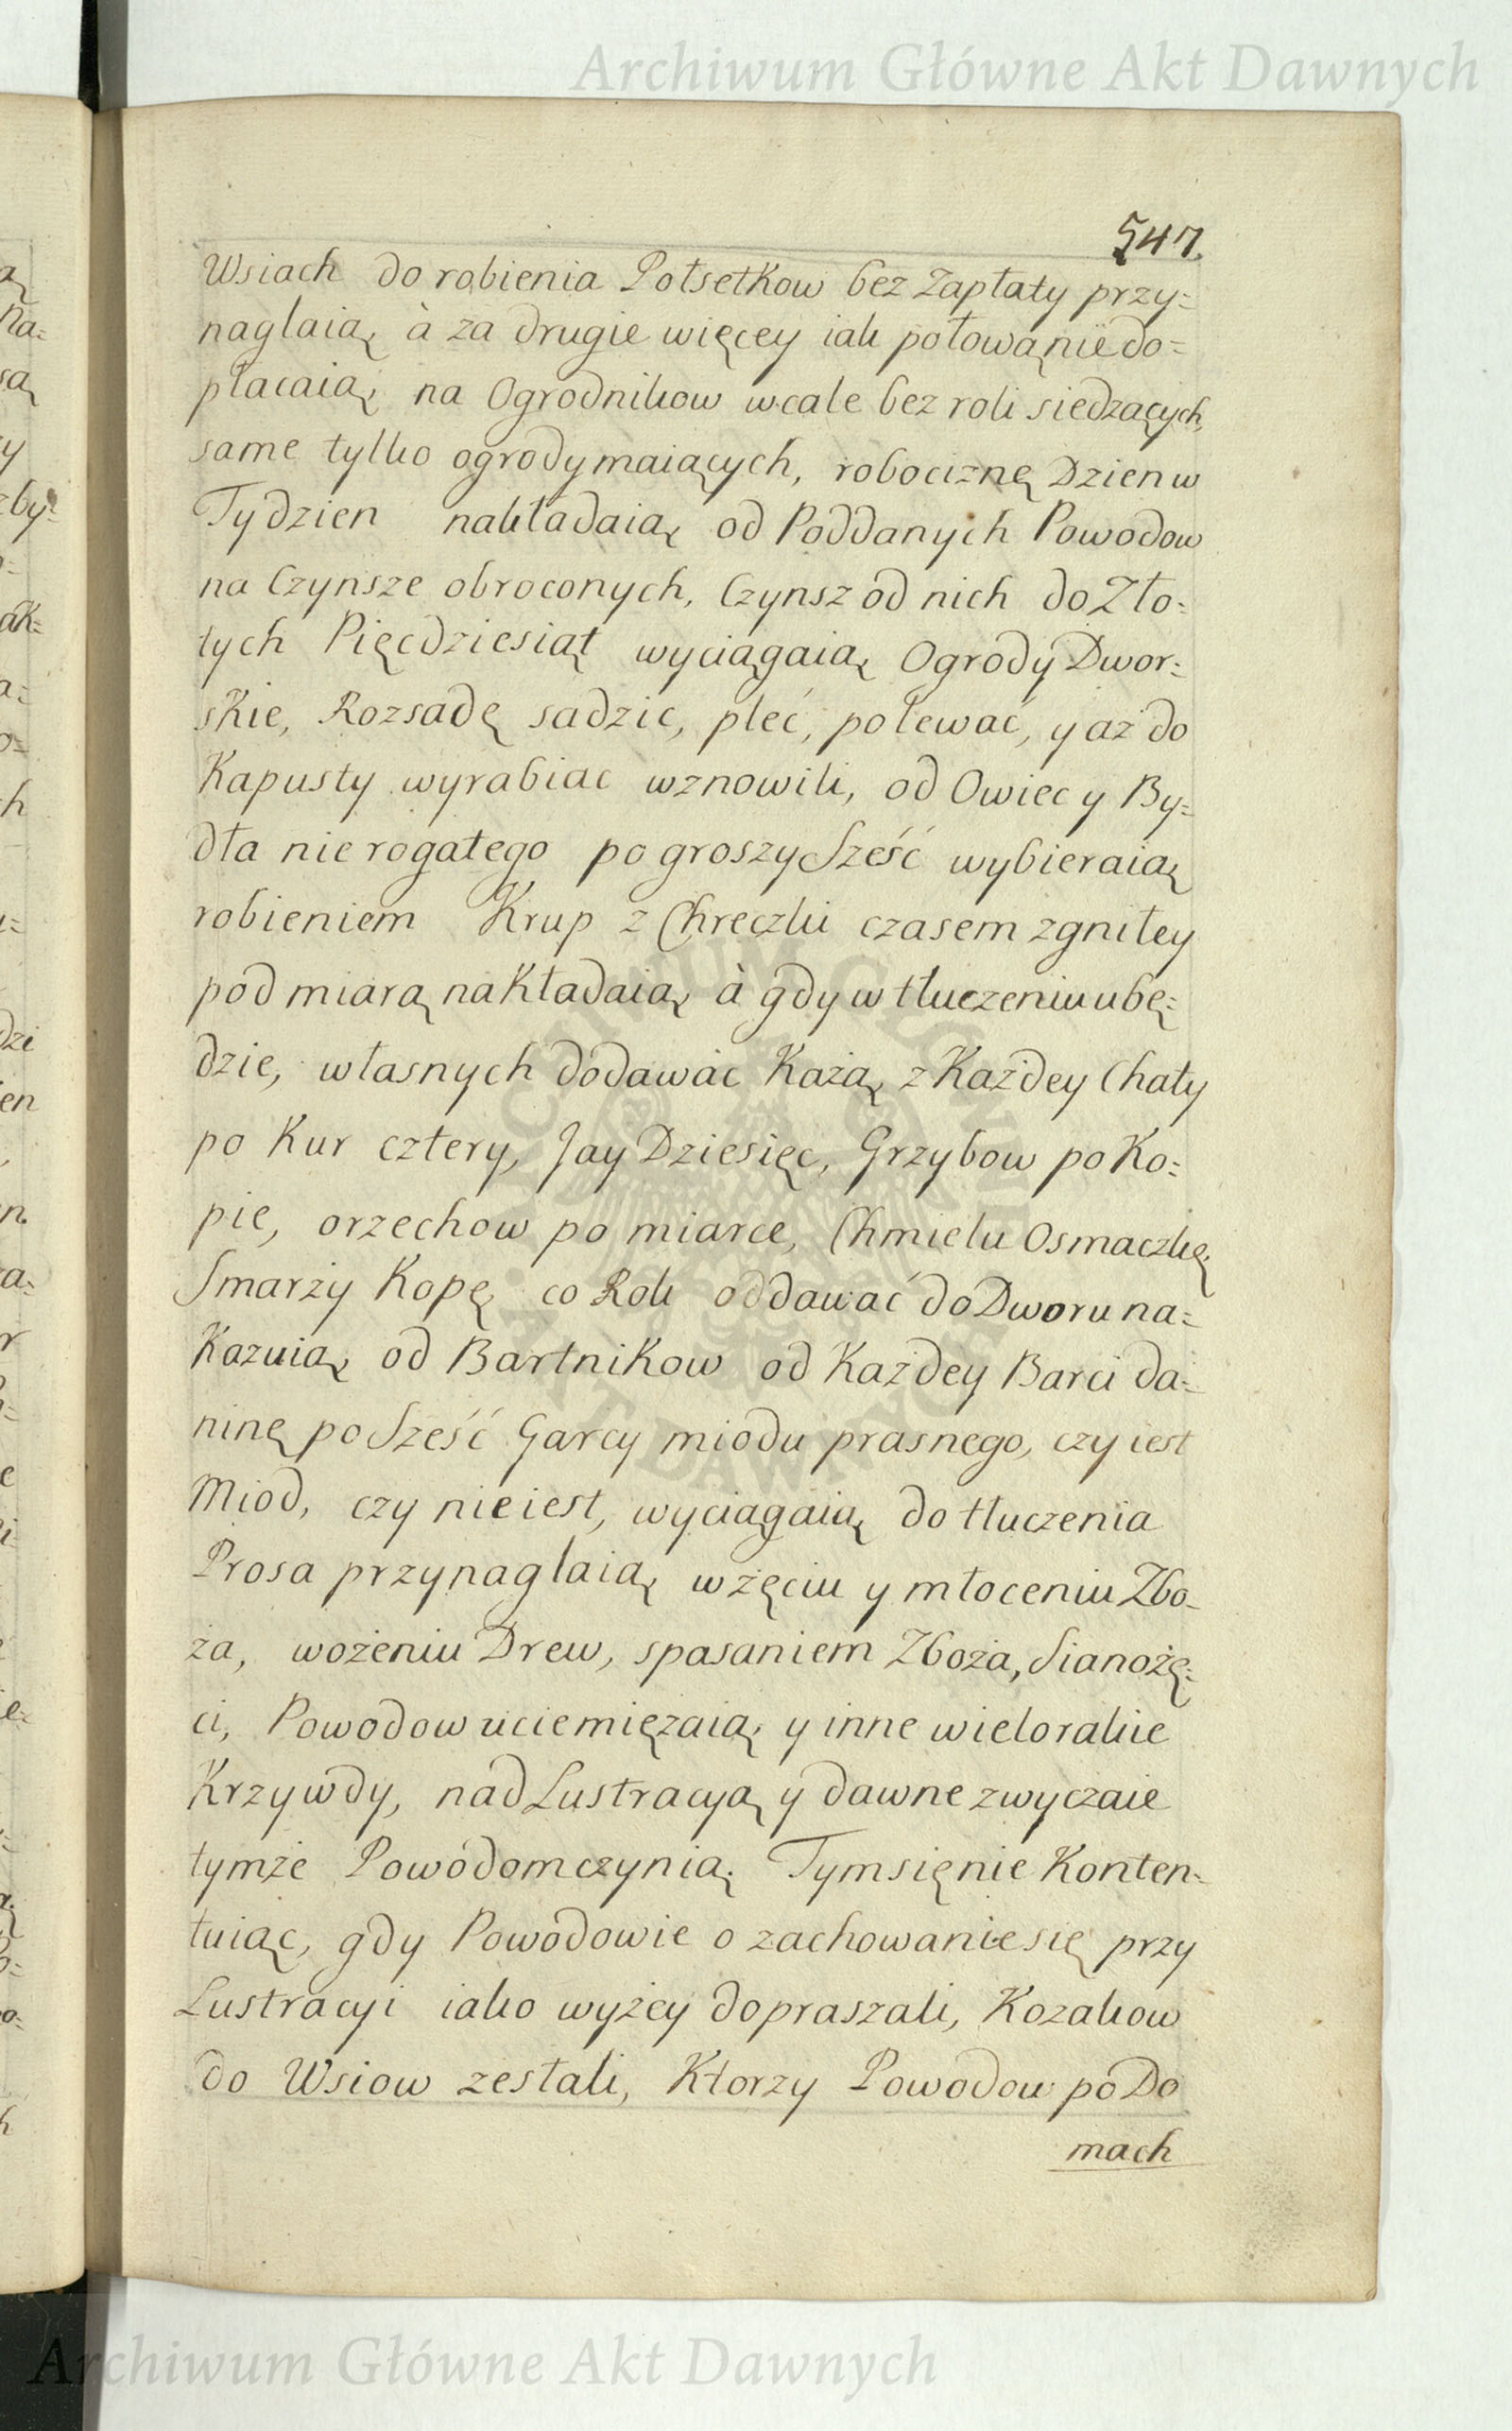 Archiwum Główne Akt Dawnych
547.
Wsiach do robienia Połsetkow bez Zapłaty przy=
naglaią, à za drugie więcey iak połowąnie do=
płacaią, na Ogrodnikow wcale bez roli siedzących,
same tylko ogrody maiących, robociznę Dzien w
Tydzien nakładaią, od Poddanych Powodow
na Czynsze obroconych, Czynsz od nich do Zło=
tych Pięcdziesiąt wyciągaią, Ogrody Dwor=
skie, Rozsadę sadzic, pleć, polewać, y aż do
Kapusty wyrabiac wznowili, od Owiec y By=
dła nierogatego po groszy Sześć wybieraią,
robieniem Krup z Chreczki czasem zgniłey
pod miarą nakładaią, à gdy w tłuczeniu ubę=
dzie, własnych dodawac Każą, z Każdey Chaty
po Kur cztery, Jay Dziesięc, Grzybow po Ko=
pie, orzechow po miarce, Chmielu Osmaczkę,
Smarży Kopę co Rok oddawać do Dworu na=
Kazuią, od Bartnikow od Każdey Barci da=
ninę po Sześć Garcy miodu prasnego, czy iest
Miod, czy nieiest, wyciągaią, do tłuczenia
Prosa przynaglaią, w żęciu y młoceniu Zbo=
ża, wożeniu Drew, spasaniem Zboża, Sianożę=
ci, Powodow uciemiężaią, y inne wielorakie
Krzywdy, nad Lustracyą y dawne zwyczaie
tymże Powodom czynią, Tym się nie Konten=
tuiąc, gdy Powodowie o zachowanie się przy
Lustracyi iako wyżey dopraszali, Kozakow
do Wsiow zesłali, Ktorzy Powodow po Do
mach
Archiwum Główne Akt Dawnych